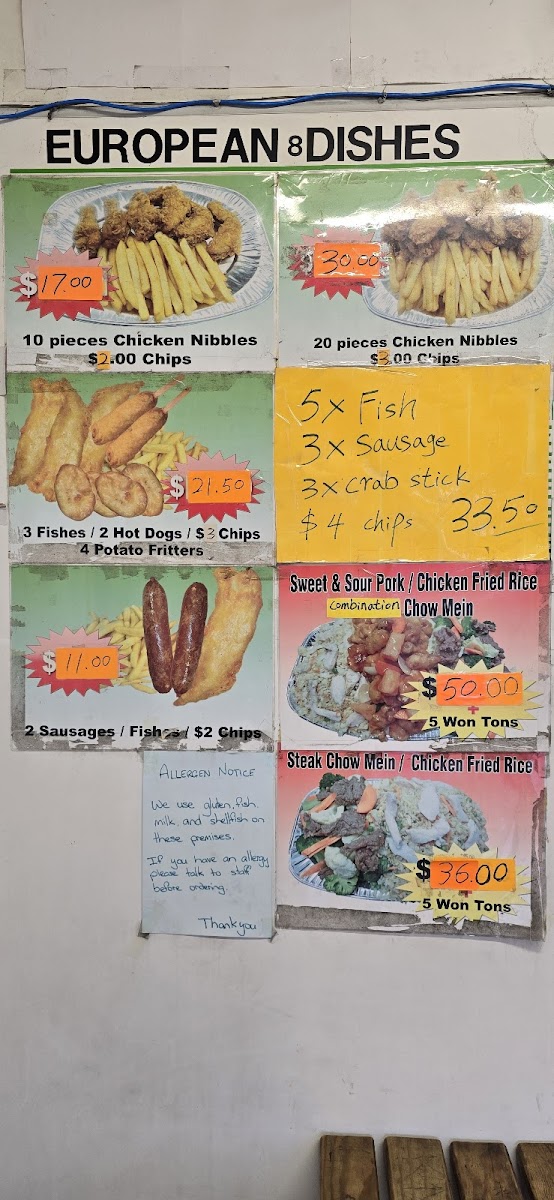 EUROPEAN 8 DISHES
$17.00
10 pieces Chicken Nibbles
$2.00 Chips
$30.00
20 pieces Chicken Nibbles
$3.00 Chips
$21.50
3 Fishes / 2 Hot Dogs / $3 Chips
4 Potato Fritters
5x Fish
3x Sausage
3x crab stick
$4 chips 33.50
$11.00
2 Sausages / Fishes / $2 Chips
Sweet & Sour Pork / Chicken Fried Rice
Combination Chow Mein
$50.00
+
5 Won Tons
Steak Chow Mein / Chicken Fried Rice
$36.00
+
5 Won Tons
ALLERGEN NOTICE
We use gluten, fish,
milk, and shellfish on
these premises.
If you have an allergy
please talk to staff
before ordering.
Thankyou